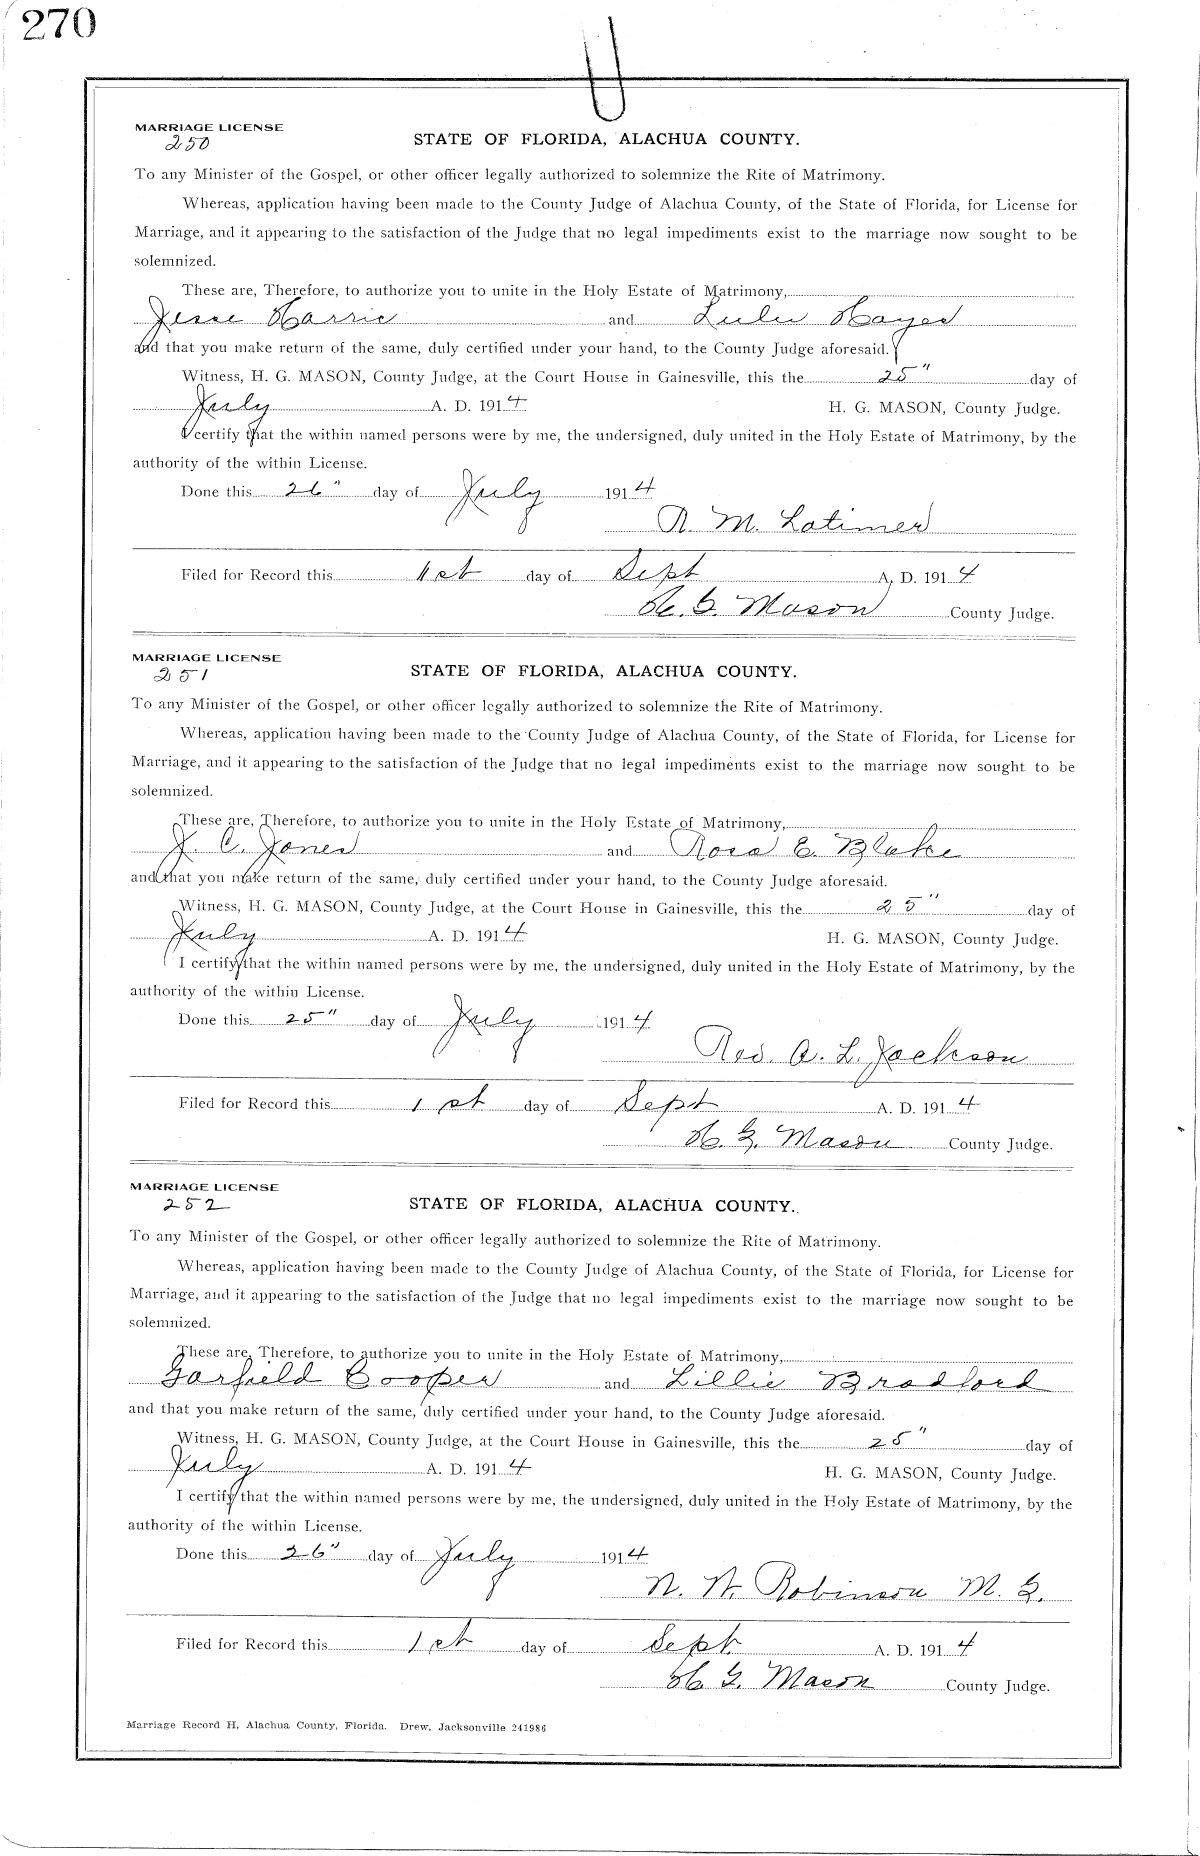 270
MARRIAGE LICENSE
250
STATE OF FLORIDA, ALACHUA COUNTY.
To any Minister of the Gospel, or other officer legally authorized to solemnize the Rite of Matrimony.
Whereas, application having been made to the County Judge of Alachua County, of the State of Florida, for License for
Marriage, and it appearing to the satisfaction of the Judge that no legal impediments exist to the marriage now sought to be
solemnized.
These are, Therefore, to authorize you to unite in the Holy Estate of Matrimony,
Jesse Harris and Lulu Hayes
and that you make return of the same, duly certified under your hand, to the County Judge aforesaid.
Witness, H. G. MASON, County Judge, at the Court House in Gainesville, this the 25" day of
July A. D. 1914 H. G. MASON, County Judge.
I certify that the within named persons were by me, the undersigned, duly united in the Holy Estate of Matrimony, by the
authority of the within License.
Done this 26" day of July 1914
R. M. Latimer
Filed for Record this 1st day of Sept A. D. 1914
H. G. Mason County Judge.
MARRIAGE LICENSE
251
STATE OF FLORIDA, ALACHUA COUNTY.
To any Minister of the Gospel, or other officer legally authorized to solemnize the Rite of Matrimony.
Whereas, application having been made to the County Judge of Alachua County, of the State of Florida, for License for
Marriage, and it appearing to the satisfaction of the Judge that no legal impediments exist to the marriage now sought to be
solemnized.
These are, Therefore, to authorize you to unite in the Holy Estate of Matrimony,
J. C. Jones and Rosa E. Blake
and that you make return of the same, duly certified under your hand, to the County Judge aforesaid.
Witness, H. G. MASON, County Judge, at the Court House in Gainesville, this the 25" day of
July A. D. 1914 H. G. MASON, County Judge.
I certify that the within named persons were by me, the undersigned, duly united in the Holy Estate of Matrimony, by the
authority of the within License.
Done this 25" day of July 1914
Rev. A. L. Jackson
Filed for Record this 1st day of Sept A. D. 1914
H. G. Mason County Judge.
MARRIAGE LICENSE
252
STATE OF FLORIDA, ALACHUA COUNTY.
To any Minister of the Gospel, or other officer legally authorized to solemnize the Rite of Matrimony.
Whereas, application having been made to the County Judge of Alachua County, of the State of Florida, for License for
Marriage, and it appearing to the satisfaction of the Judge that no legal impediments exist to the marriage now sought to be
solemnized.
These are, Therefore, to authorize you to unite in the Holy Estate of Matrimony,
Garfield Cooper and Lillie Bradford
and that you make return of the same, duly certified under your hand, to the County Judge aforesaid.
Witness, H. G. MASON, County Judge, at the Court House in Gainesville, this the 25" day of
July A. D. 1914 H. G. MASON, County Judge.
I certify that the within named persons were by me, the undersigned, duly united in the Holy Estate of Matrimony, by the
authority of the within License.
Done this 26" day of July 1914
N. W. Robinson M. G.
Filed for Record this 1st day of Sept. A. D. 1914
H. G. Mason County Judge.
Marriage Record H, Alachua County, Florida. Drew, Jacksonville 241986